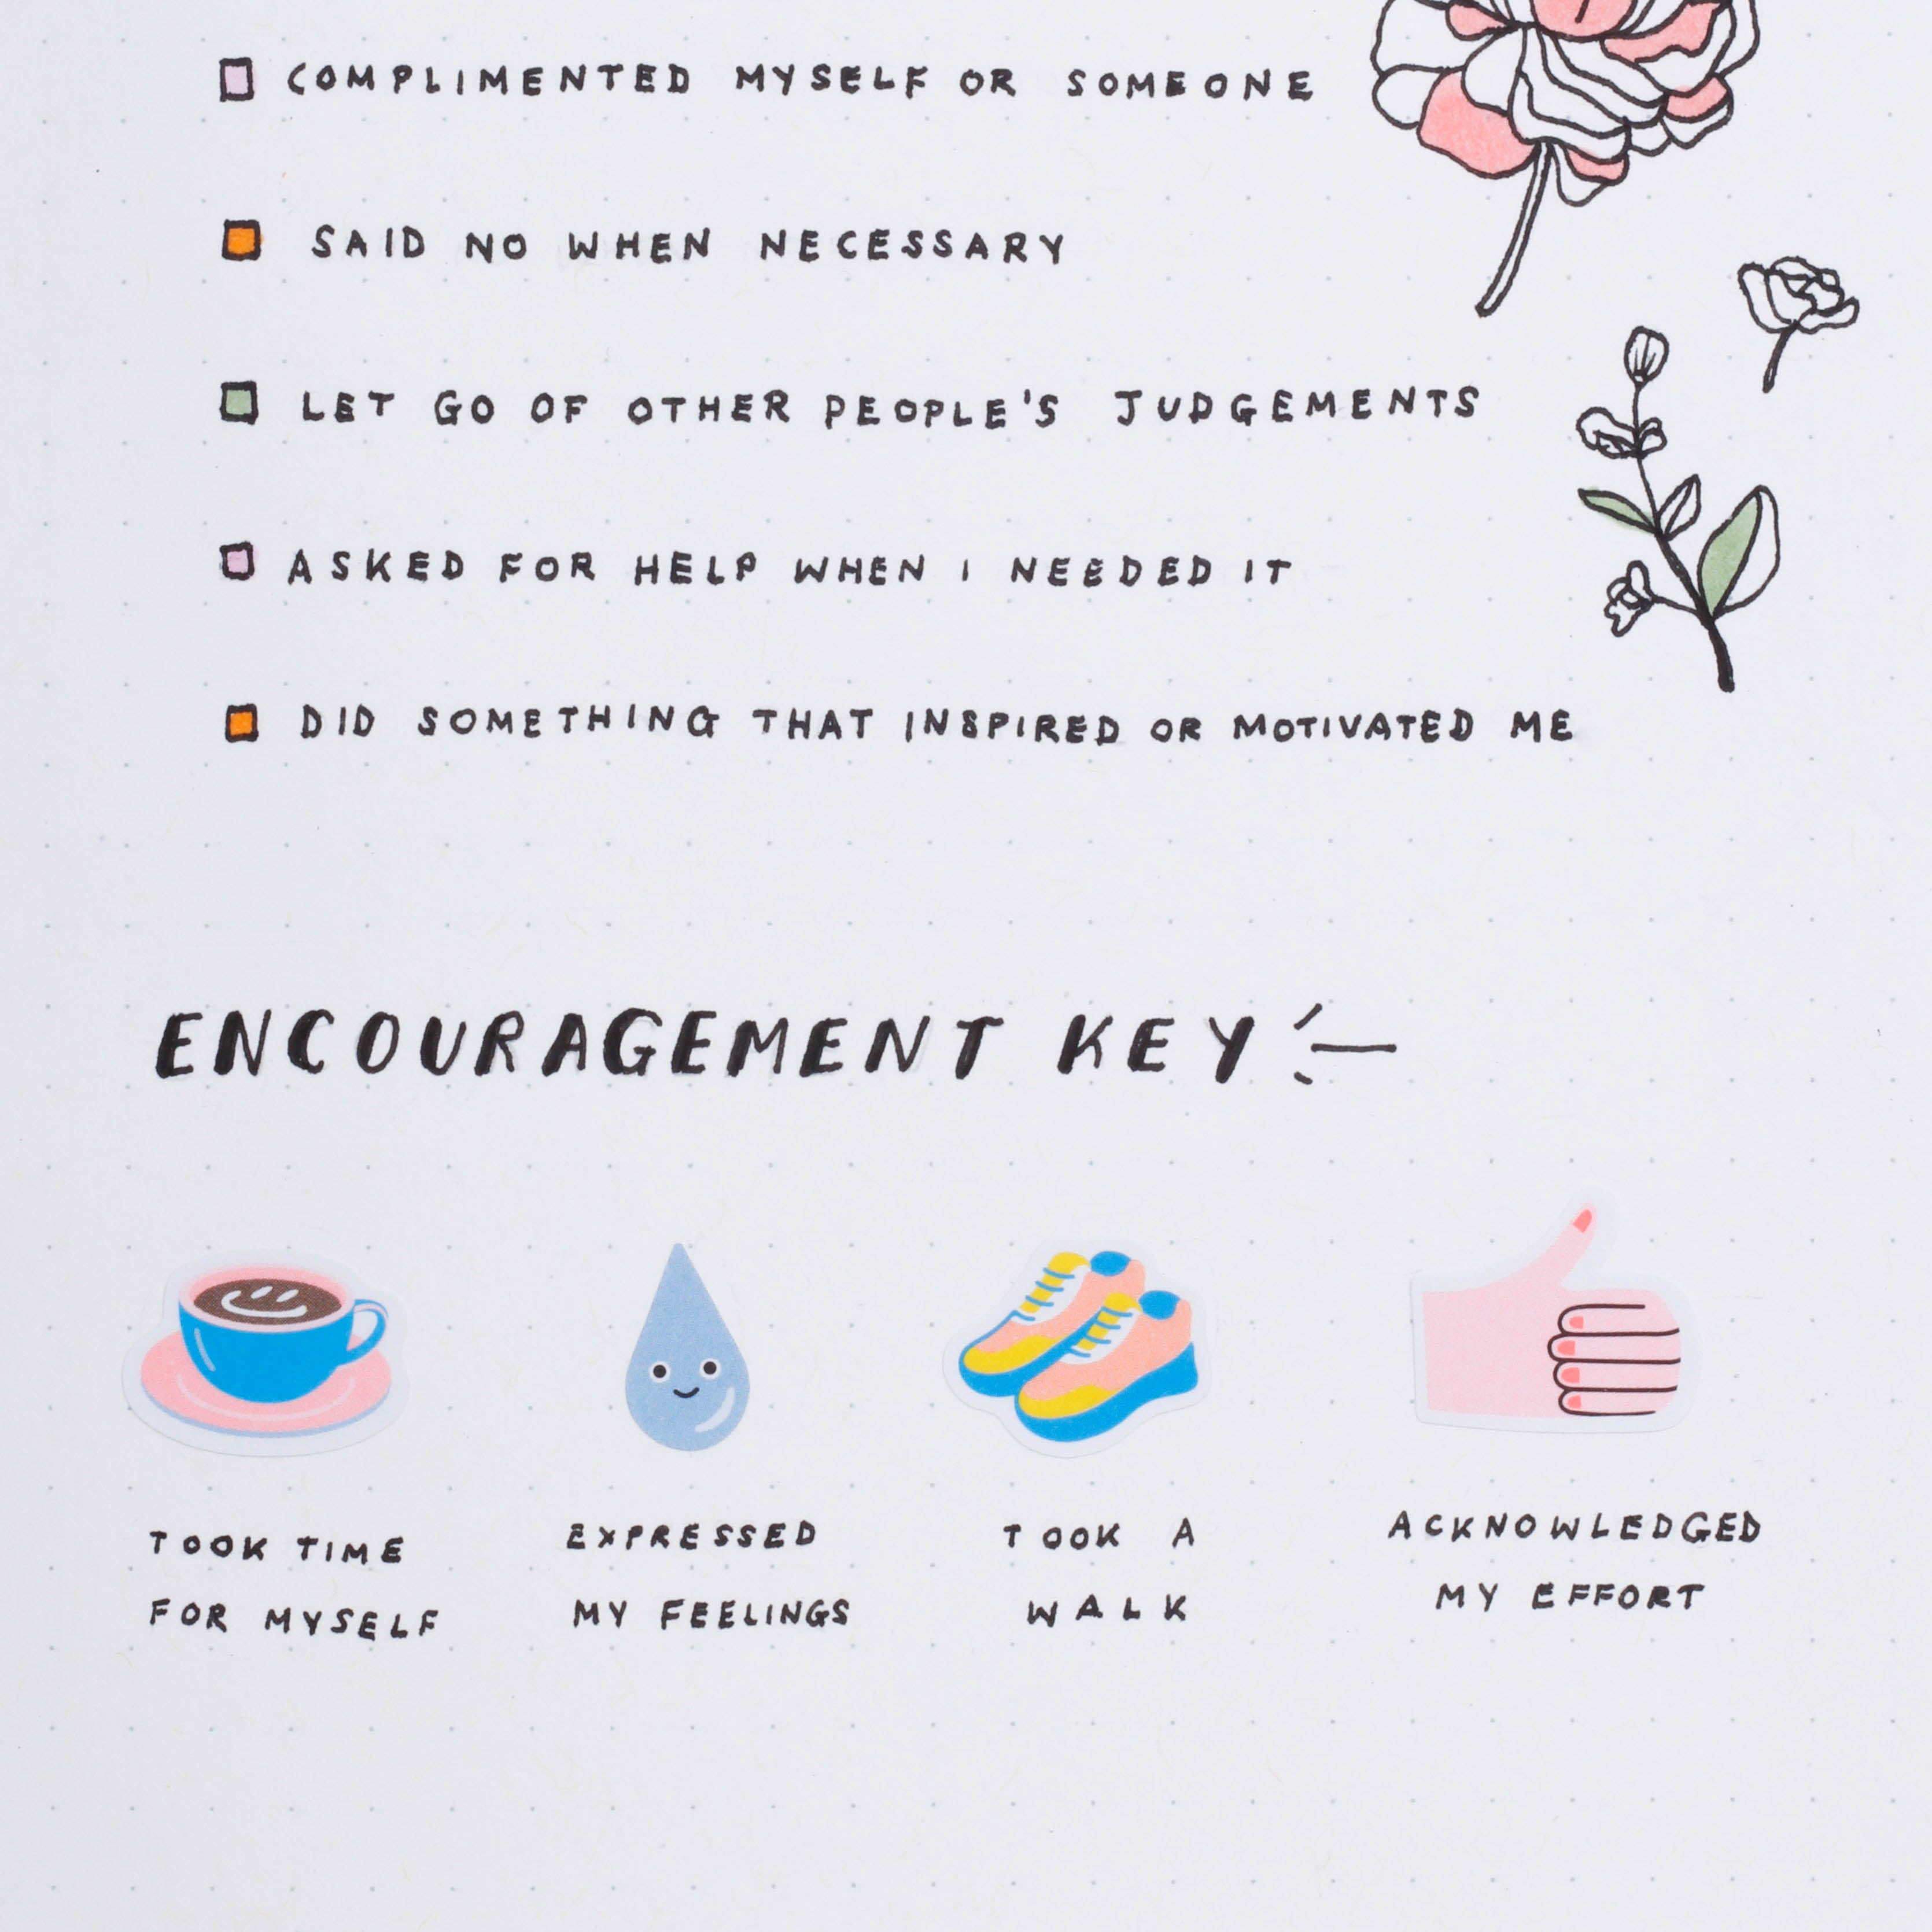 COMPLIMENTED MYSELF OR SOMEONE
SAID NO WHEN NECESSARY
LET GO OF OTHER PEOPLE'S JUDGEMENTS
ASKED FOR HELP WHEN I NEEDED IT
DID SOMETHING THAT INSPIRED OR MOTIVATED ME
ENCOURAGEMENT KEY
TOOK TIME
FOR MYSELF
EXPRESSED
MY FEELINGS
TOOK A
WALK
ACKNOWLEDGED
MY EFFORT